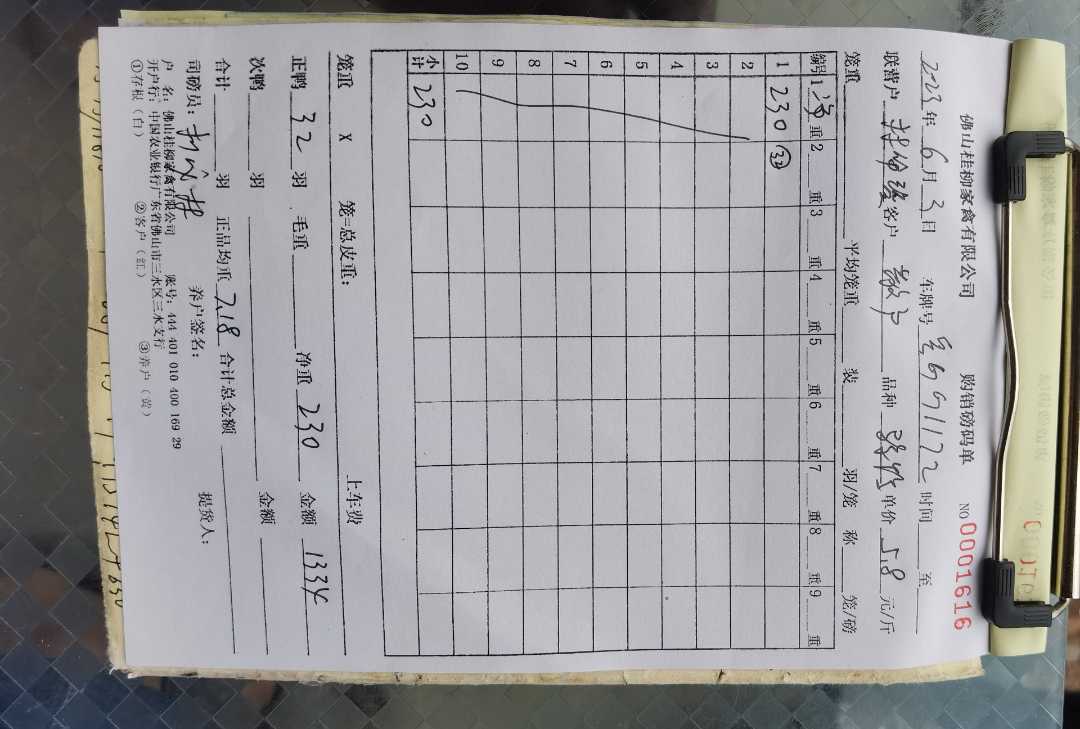 佛山桂柳家禽有限公司 购销磅码单 NO 0001616
2023年6月3日 车牌号 G1172 时间 至
联营户 客户 品种 单价 5.8 元/斤
笼重 平均笼重 装 羽/笼 称 笼/磅
编号 1 净重 2 重 3 重 4 重 5 重 6 重 7 重 8 重 9 重
1 230 32
2
3
4
5
6
7
8
9
10
小计 230
笼重 X 笼=总皮重: 上车费
正鸭 32 羽 毛重 净重 230 金额 1334
次鸭 羽 金额
合计 羽 正品均重 7.18 合计总金额
司磅员: 养户签名: 提货人:
户 名: 佛山桂柳家禽有限公司 账号: 444 401 010 400 169 29
开户行: 中国农业银行广东省佛山市三水区三水支行
①存根(白) ②客户(红) ③养户(黄)